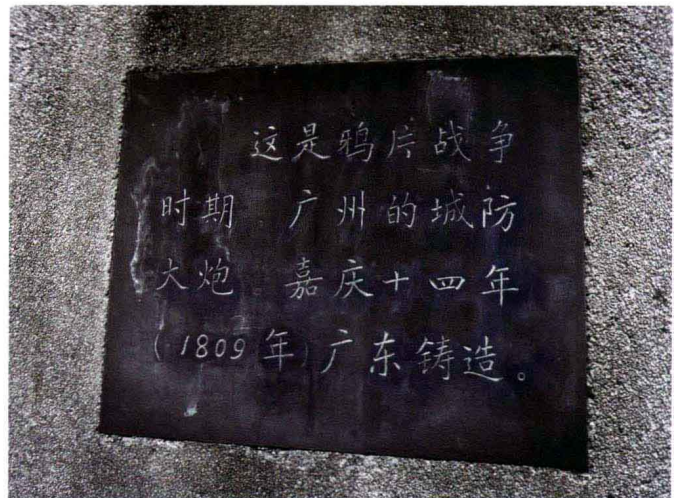 这是鸦片战争
时期 广州的城防
大炮 嘉庆十四年
(1809年)广东铸造。